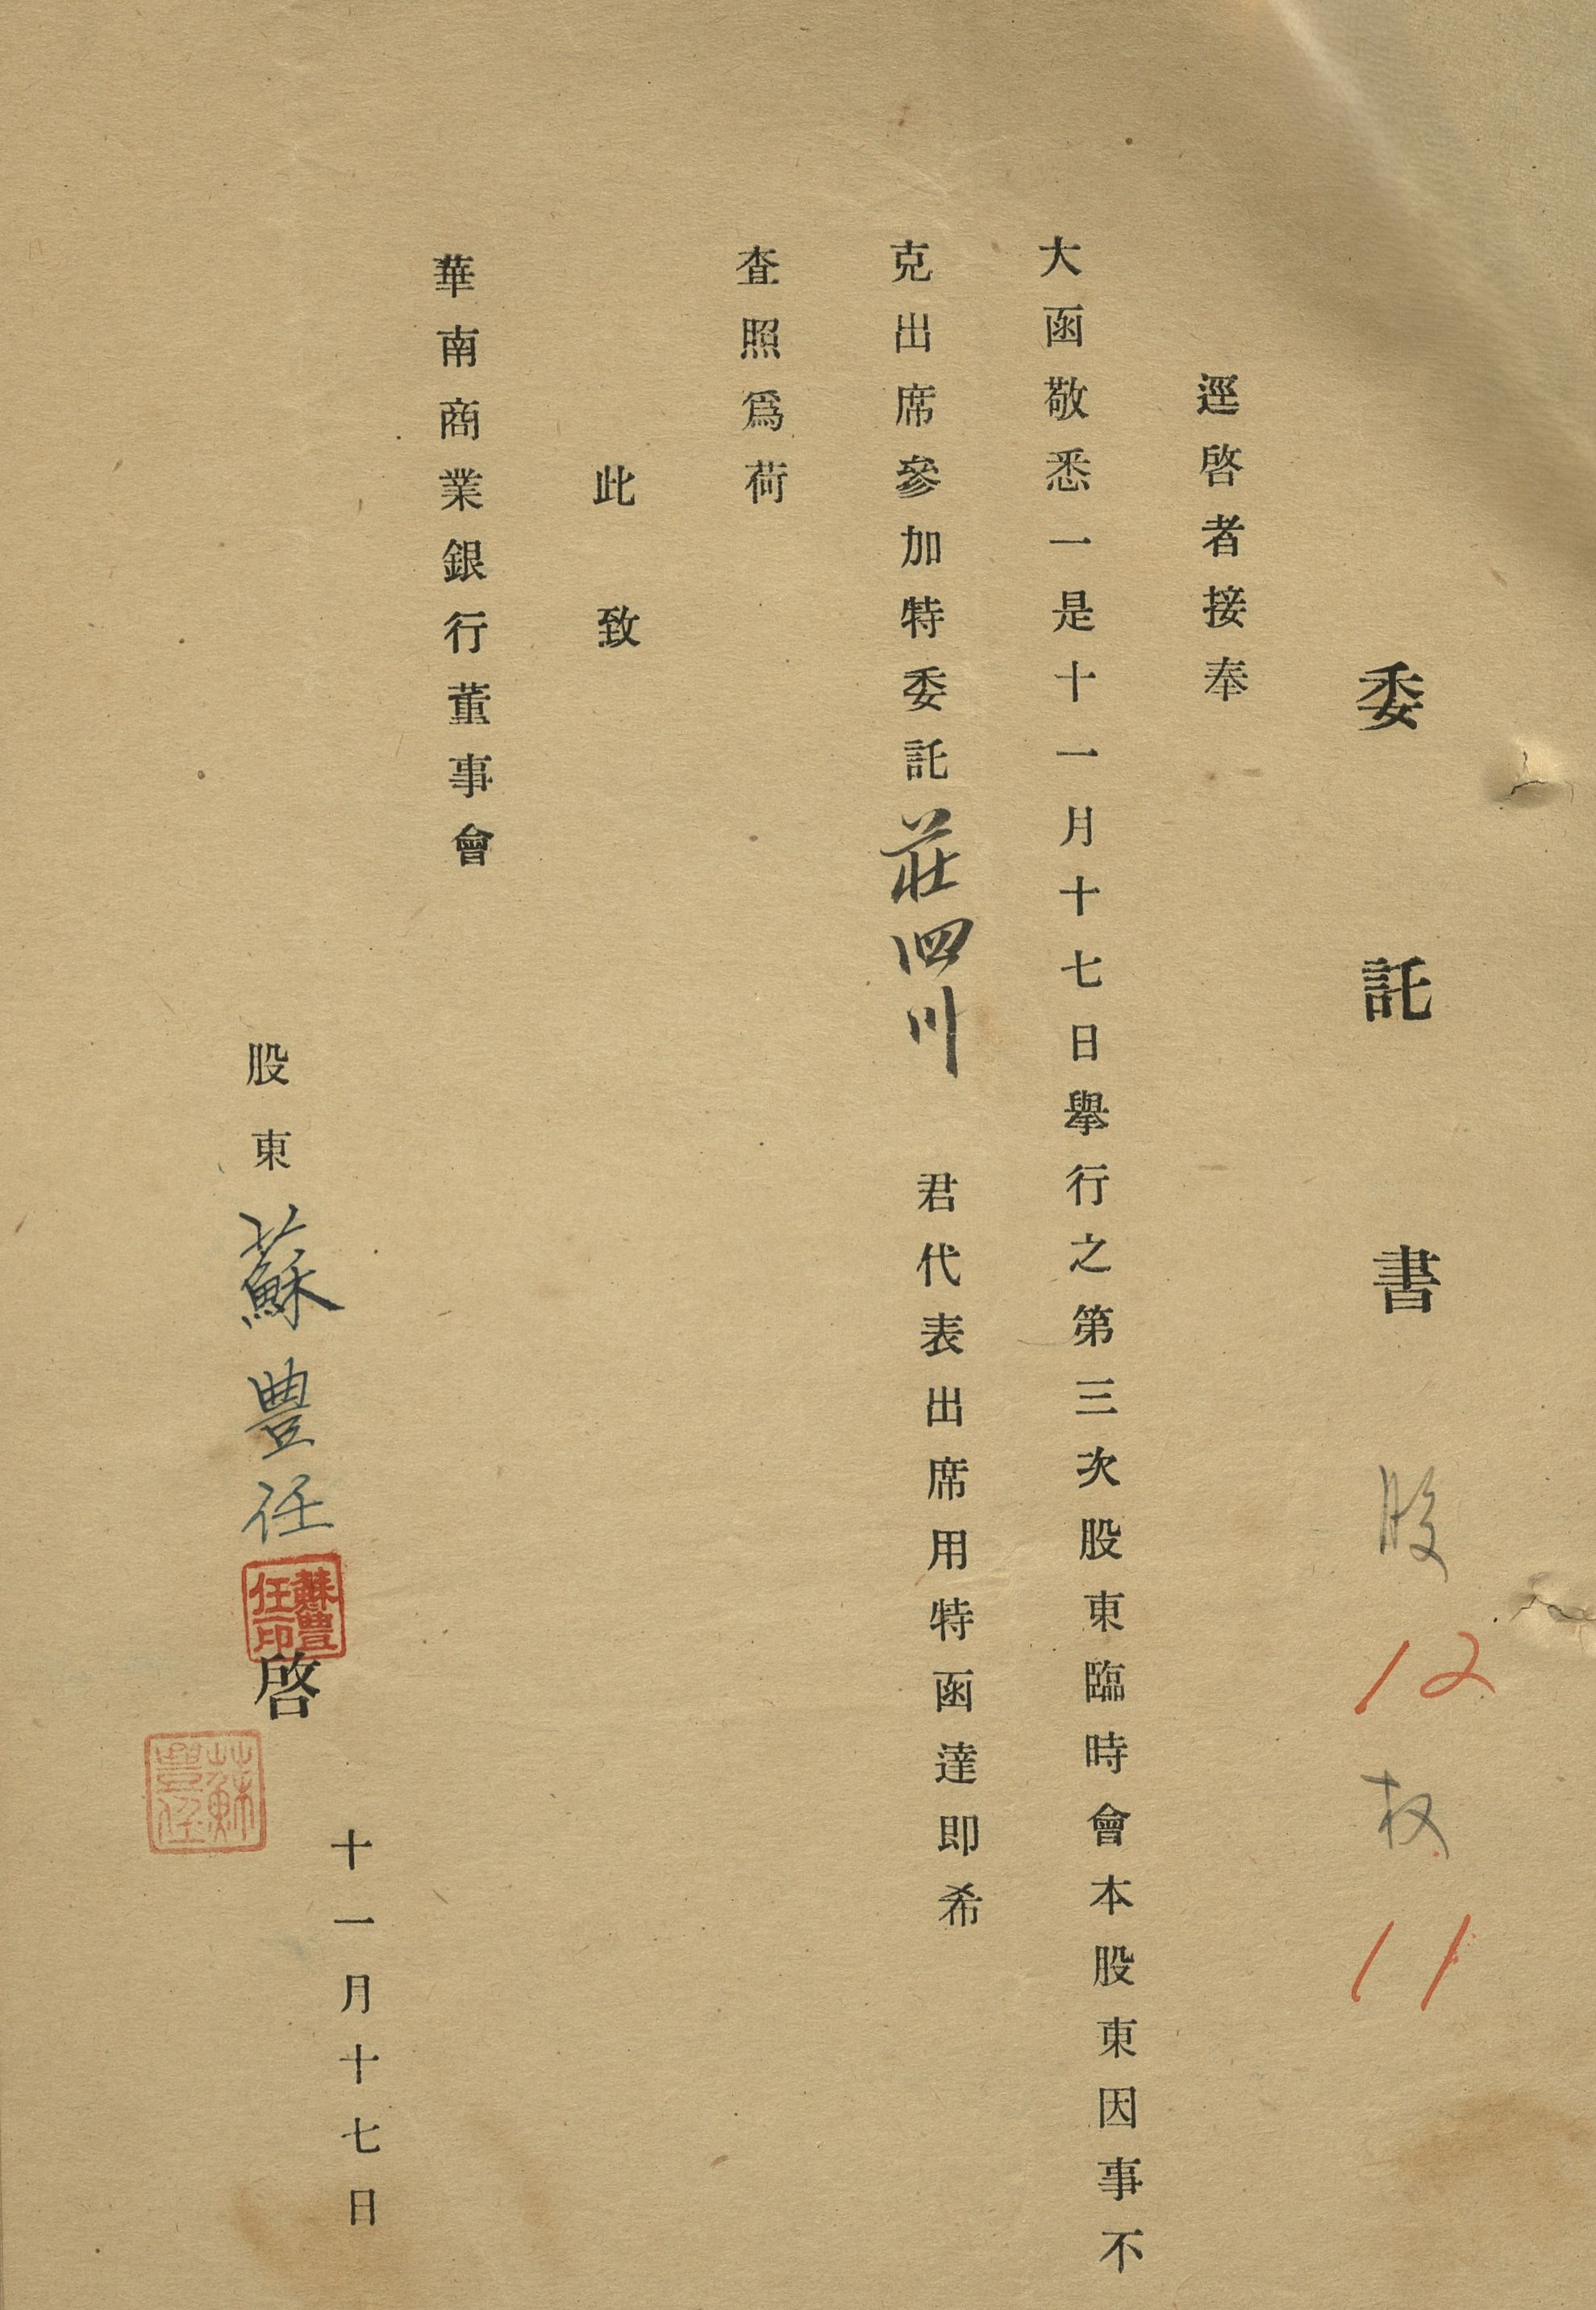 委託書 股 12 权 11
逕啓者接奉
大函敬悉一是十一月十七日舉行之第三次股東臨時會本股東因事不
克出席參加特委託莊四川 君代表出席用特函達即希
查照爲荷
此致
華南商業銀行董事會
十一月十七日
股東 蘇豐任 啓
蘇豐任印
蘇豐任